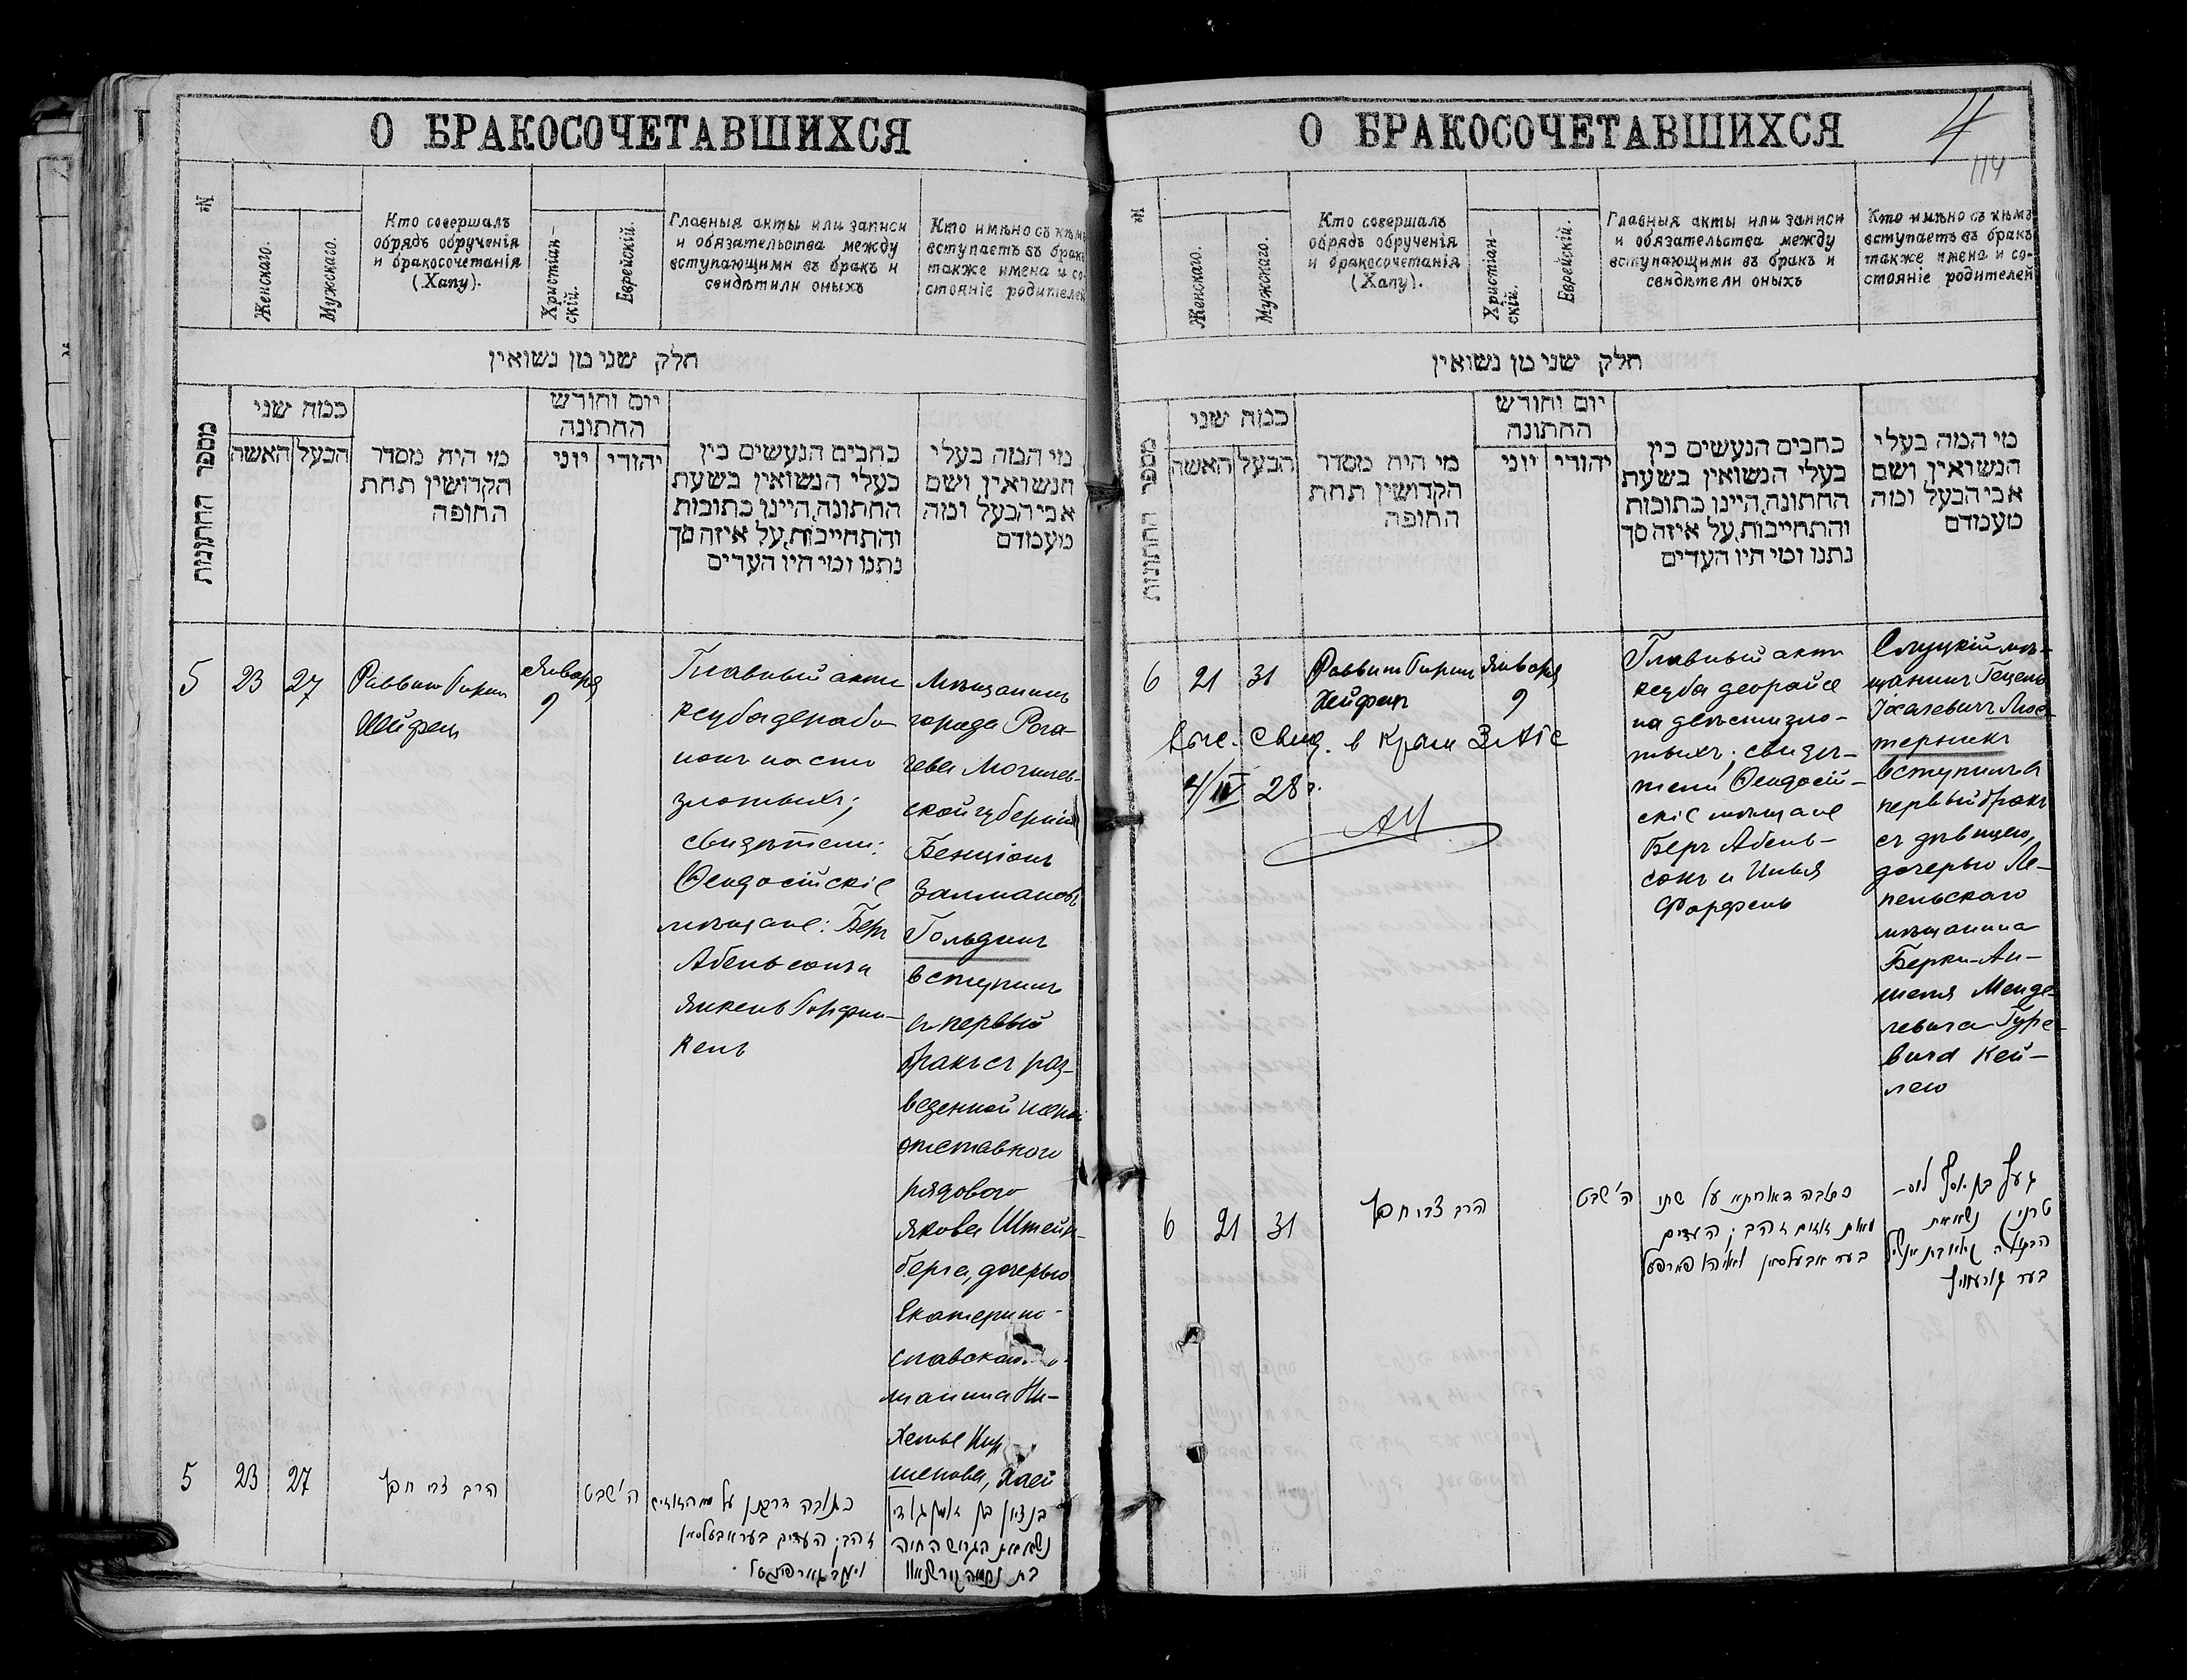 О БРАКОСОЧЕТАВШИХСЯ
№
Женскаго.
Мужскаго.
Кто совершалъ
обрядъ обрученія
и бракосочетанія
(Хапу).
Христіан-
скій.
Еврейскій.
Главныя акты или записи
и обязательства между
вступающими въ бракъ и
свидѣтили оныхъ
Кто имѣно съ кѣмъ
вступаетъ въ бракъ
также имена и со-
стояніе родителей
חלק שני מן נשואין
מספר החתונות
כמה שני
האשה
הבעל
מי היה מסדר
הקדושין תחת
החופה
יום וחורש
החתונה
יוני
יהודי
כתבים הנעשים בין
בעלי הנשואין בשעת
החתונה, היינו כתובות
והתחייבות, על איזה סך
נתנו ומי היו העדים
מי המה בעלי
הנשואין ושם
אבי הבעל ומה
מעמדם
5
23
27
Раввинъ
Января
9
Главный актъ
на сто
злотыхъ;
свидѣтели:
Ѳеодосійскіе
мѣщане: Беръ
Абельсонъ и
Янкель Гарфин-
кель
Мѣщанинъ
города Рога-
чева Могилев-
ской губерніи
Бенціонъ
Залмановъ
Гольдинъ
вступилъ
въ первый
бракъ съ раз-
веденной женой
отставного
рядового
Якова Штейн-
берга, дочерью
Екатерино-
славскаго
щанина Ни-
хемье
шенова, Хаей
5
23
27
הרב צבי
ה' שבט
כתובה על
זהב; העדים בער אבעלסאן
בן ציון בן זלמן גולדין
נשא את הגרושה חיה
בת נחמיה
О БРАКОСОЧЕТАВШИХСЯ
4
114
№
Женскаго.
Мужскаго.
Кто совершалъ
обрядъ обрученія
и бракосочетанія
(Хапу).
Христіан-
скій.
Еврейскій.
Главныя акты или записи
и обязательства между
вступающими въ бракъ и
свидѣтели оныхъ
Кто имѣно съ кѣмъ
вступаетъ въ бракъ
также имена и со-
стояніе родителей
חלק שני מן נשואין
מספר החתונות
כמה שני
האשה
הבעל
מי היה מסדר
הקדושין תחת
החופה
יום וחורש
החתונה
יוני
יהודי
כתבים הנעשים בין
בעלי הנשואין בשעת
החתונה, היינו כתובות
והתחייבות, על איזה סך
נתנו ומי היו העדים
מי המה בעלי
הנשואין ושם
אבי הבעל ומה
מעמדם
6
21
31
Раввинъ
Января
9
в Крым ЗАГС
4/IV 28 г.
Главный актъ
ксуба деорайсе
на двѣсти зло-
тыхъ; свидѣ-
тели Ѳеодосій-
скіе мѣщане
Беръ Абель-
сонъ и Илья
Фарфель
Слуцкій мѣ-
щанинъ Гецель
Іоселевичъ Люс-
терникъ
вступилъ въ
первый бракъ
съ дѣвицею,
дочерью Ле-
пельскаго
мѣщанина
Берки-Ан-
шеля Менде-
левича Гуре-
вича Кей-
лею
6
21
31
הרב צבי
ה' שבט
כתובה דאורייתא על שתי
מאות זוזים זהב; העדים
בער אבעלסאן ואליהו פארפעל
געץ בן יוסף לוס-
טרניק נשא את
הבתולה קיילע בת אנשיל
בער גורעוויץ